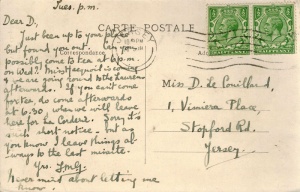 Tues. p.m.
CARTE POSTALE
Dear D.,
Just been up to your place
but found you out. Can you
possibly come to tea at 6 pm
on Wed? Miss is coming
we are going to the
afterwards. If you can't come
for tea, do come afterwards
at 6.30 when we will leave
here for La Corderie. Sorry it's
such short notice - but as
you know I leave things al-
ways to the last minute.
Yrs.
Never mind about letting me
know.
Correspondence
Miss D. de Couillard,
1, Vimiera Place,
Stopford Rd.
Jersey.